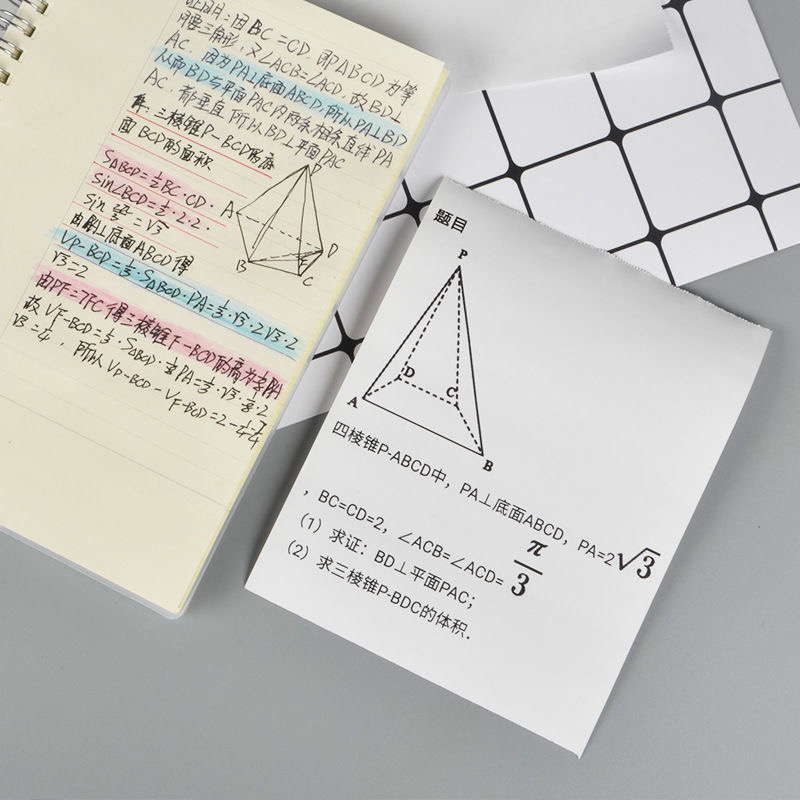 证明:因BC=CD,即△BCD为等
腰三角形,又∠ACB=∠ACD,故BD⊥
AC.因为PA⊥底面ABCD,所以PA⊥BD
从而BD与平面PAC内两条相条直线PA
AC.都垂直所以BD⊥平面PAC
解.三棱锥P-BCD的底
面BCD的面积
S△BCD=½BC·CD·
sin∠BCD=½·2·2·
=√3
A
D
B
C
底面ABCD得
VP-BCD=⅓·S△BCD·PA=⅓·√3·2√3·2
√3=2
由PF=7FC得三棱锥F-BCD的高为⅛PA
故VF-BCD=⅓·S△BCD·⅛PA=⅓·√3·⅛·2
√3=¼,所以VP-BCD-VF-BCD=2-¼=
题目
P
D
C
A
B
四棱锥P-ABCD中,PA⊥底面ABCD,PA=2√3
,BC=CD=2,∠ACB=∠ACD=π/3
(1)求证:BD⊥平面PAC;
(2)求三棱锥P-BDC的体积.